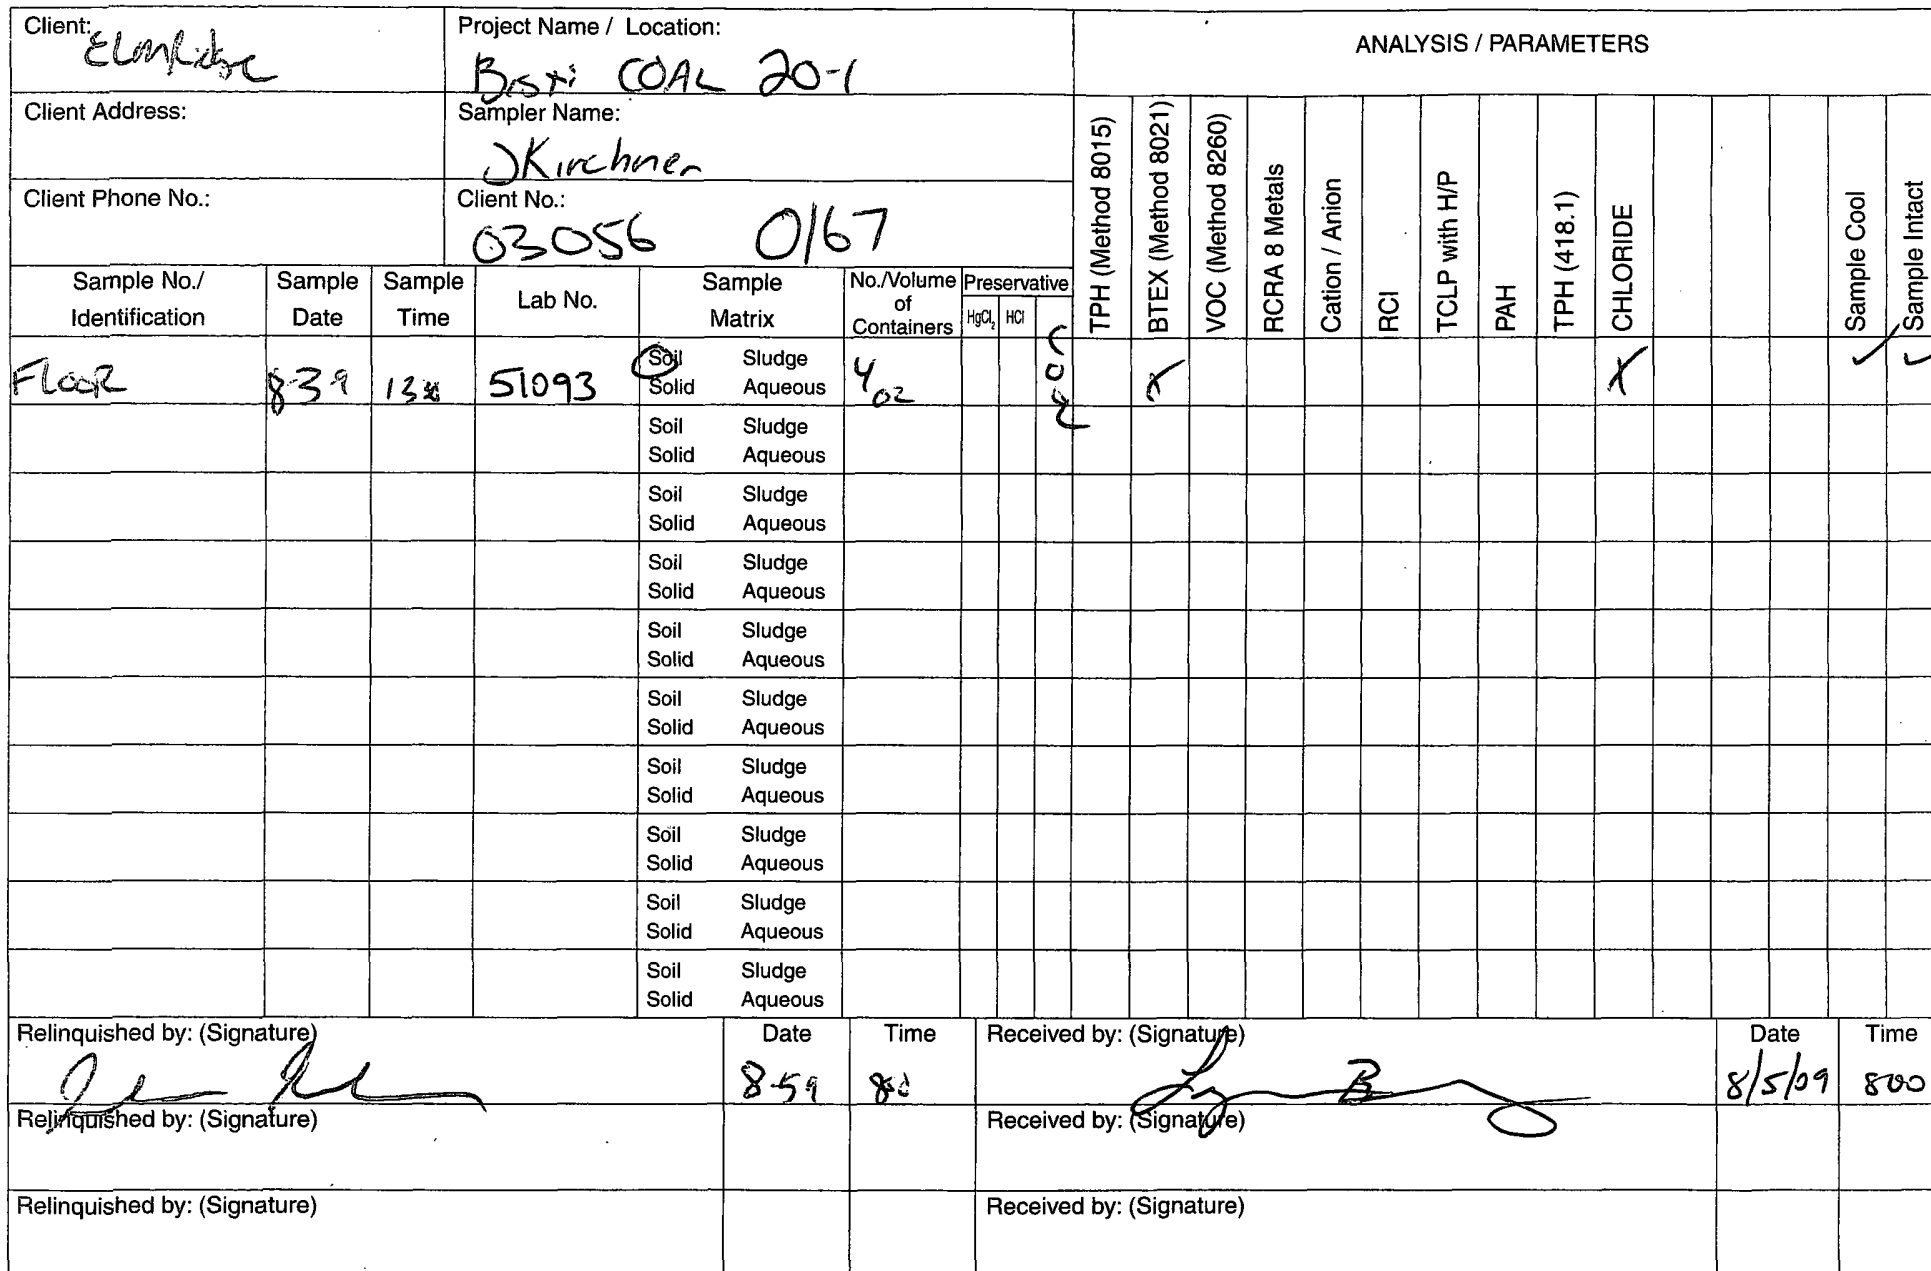 Client: ElmRidge
Project Name / Location:
Bisti COAL 20-1
ANALYSIS / PARAMETERS
Client Address:
Sampler Name:
JKirchner
Client Phone No.:
Client No.:
03056 0167
Sample No./ Identification
Sample Date
Sample Time
Lab No.
Sample Matrix
No./Volume of Containers
Preservative
HgCl₂
HCl
TPH (Method 8015)
BTEX (Method 8021)
VOC (Method 8260)
RCRA 8 Metals
Cation / Anion
RCI
TCLP with H/P
PAH
TPH (418.1)
CHLORIDE
Sample Cool
Sample Intact
Soil Sludge
FLOOR 8-3-9 51093 Solid Aqueous 4oz cool X X ✓ ✓
Soil Sludge
Solid Aqueous
Soil Sludge
Solid Aqueous
Soil Sludge
Solid Aqueous
Soil Sludge
Solid Aqueous
Soil Sludge
Solid Aqueous
Soil Sludge
Solid Aqueous
Soil Sludge
Solid Aqueous
Soil Sludge
Solid Aqueous
Soil Sludge
Solid Aqueous
Relinquished by: (Signature) Date Time Received by: (Signature) Date Time
8-5-9 8/5/09 800
Relinquished by: (Signature) Received by: (Signature)
Relinquished by: (Signature) Received by: (Signature)